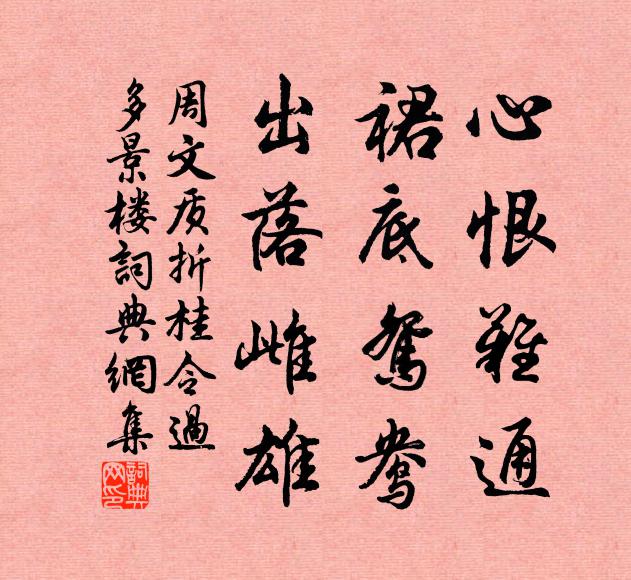 心恨难通
裙底鸳鸯
出落雌雄
周文质折桂令過
多景楼詞典網集
詞典网印